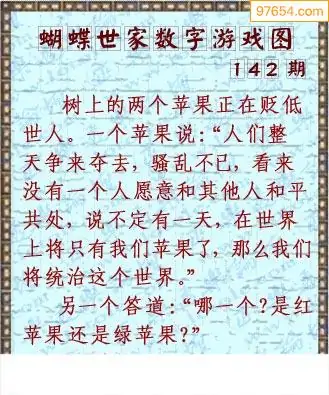 97654.com
蝴蝶世家数字游戏图
142期
树上的两个苹果正在贬低
世人。一个苹果说:“人们整
天争来夺去,骚乱不已,看来
没有一个人愿意和其他人和平
共处,说不定有一天,在世界
上将只有我们苹果了,那么我们
将统治这个世界。”
另一个答道:“哪一个?是红
苹果还是绿苹果?”